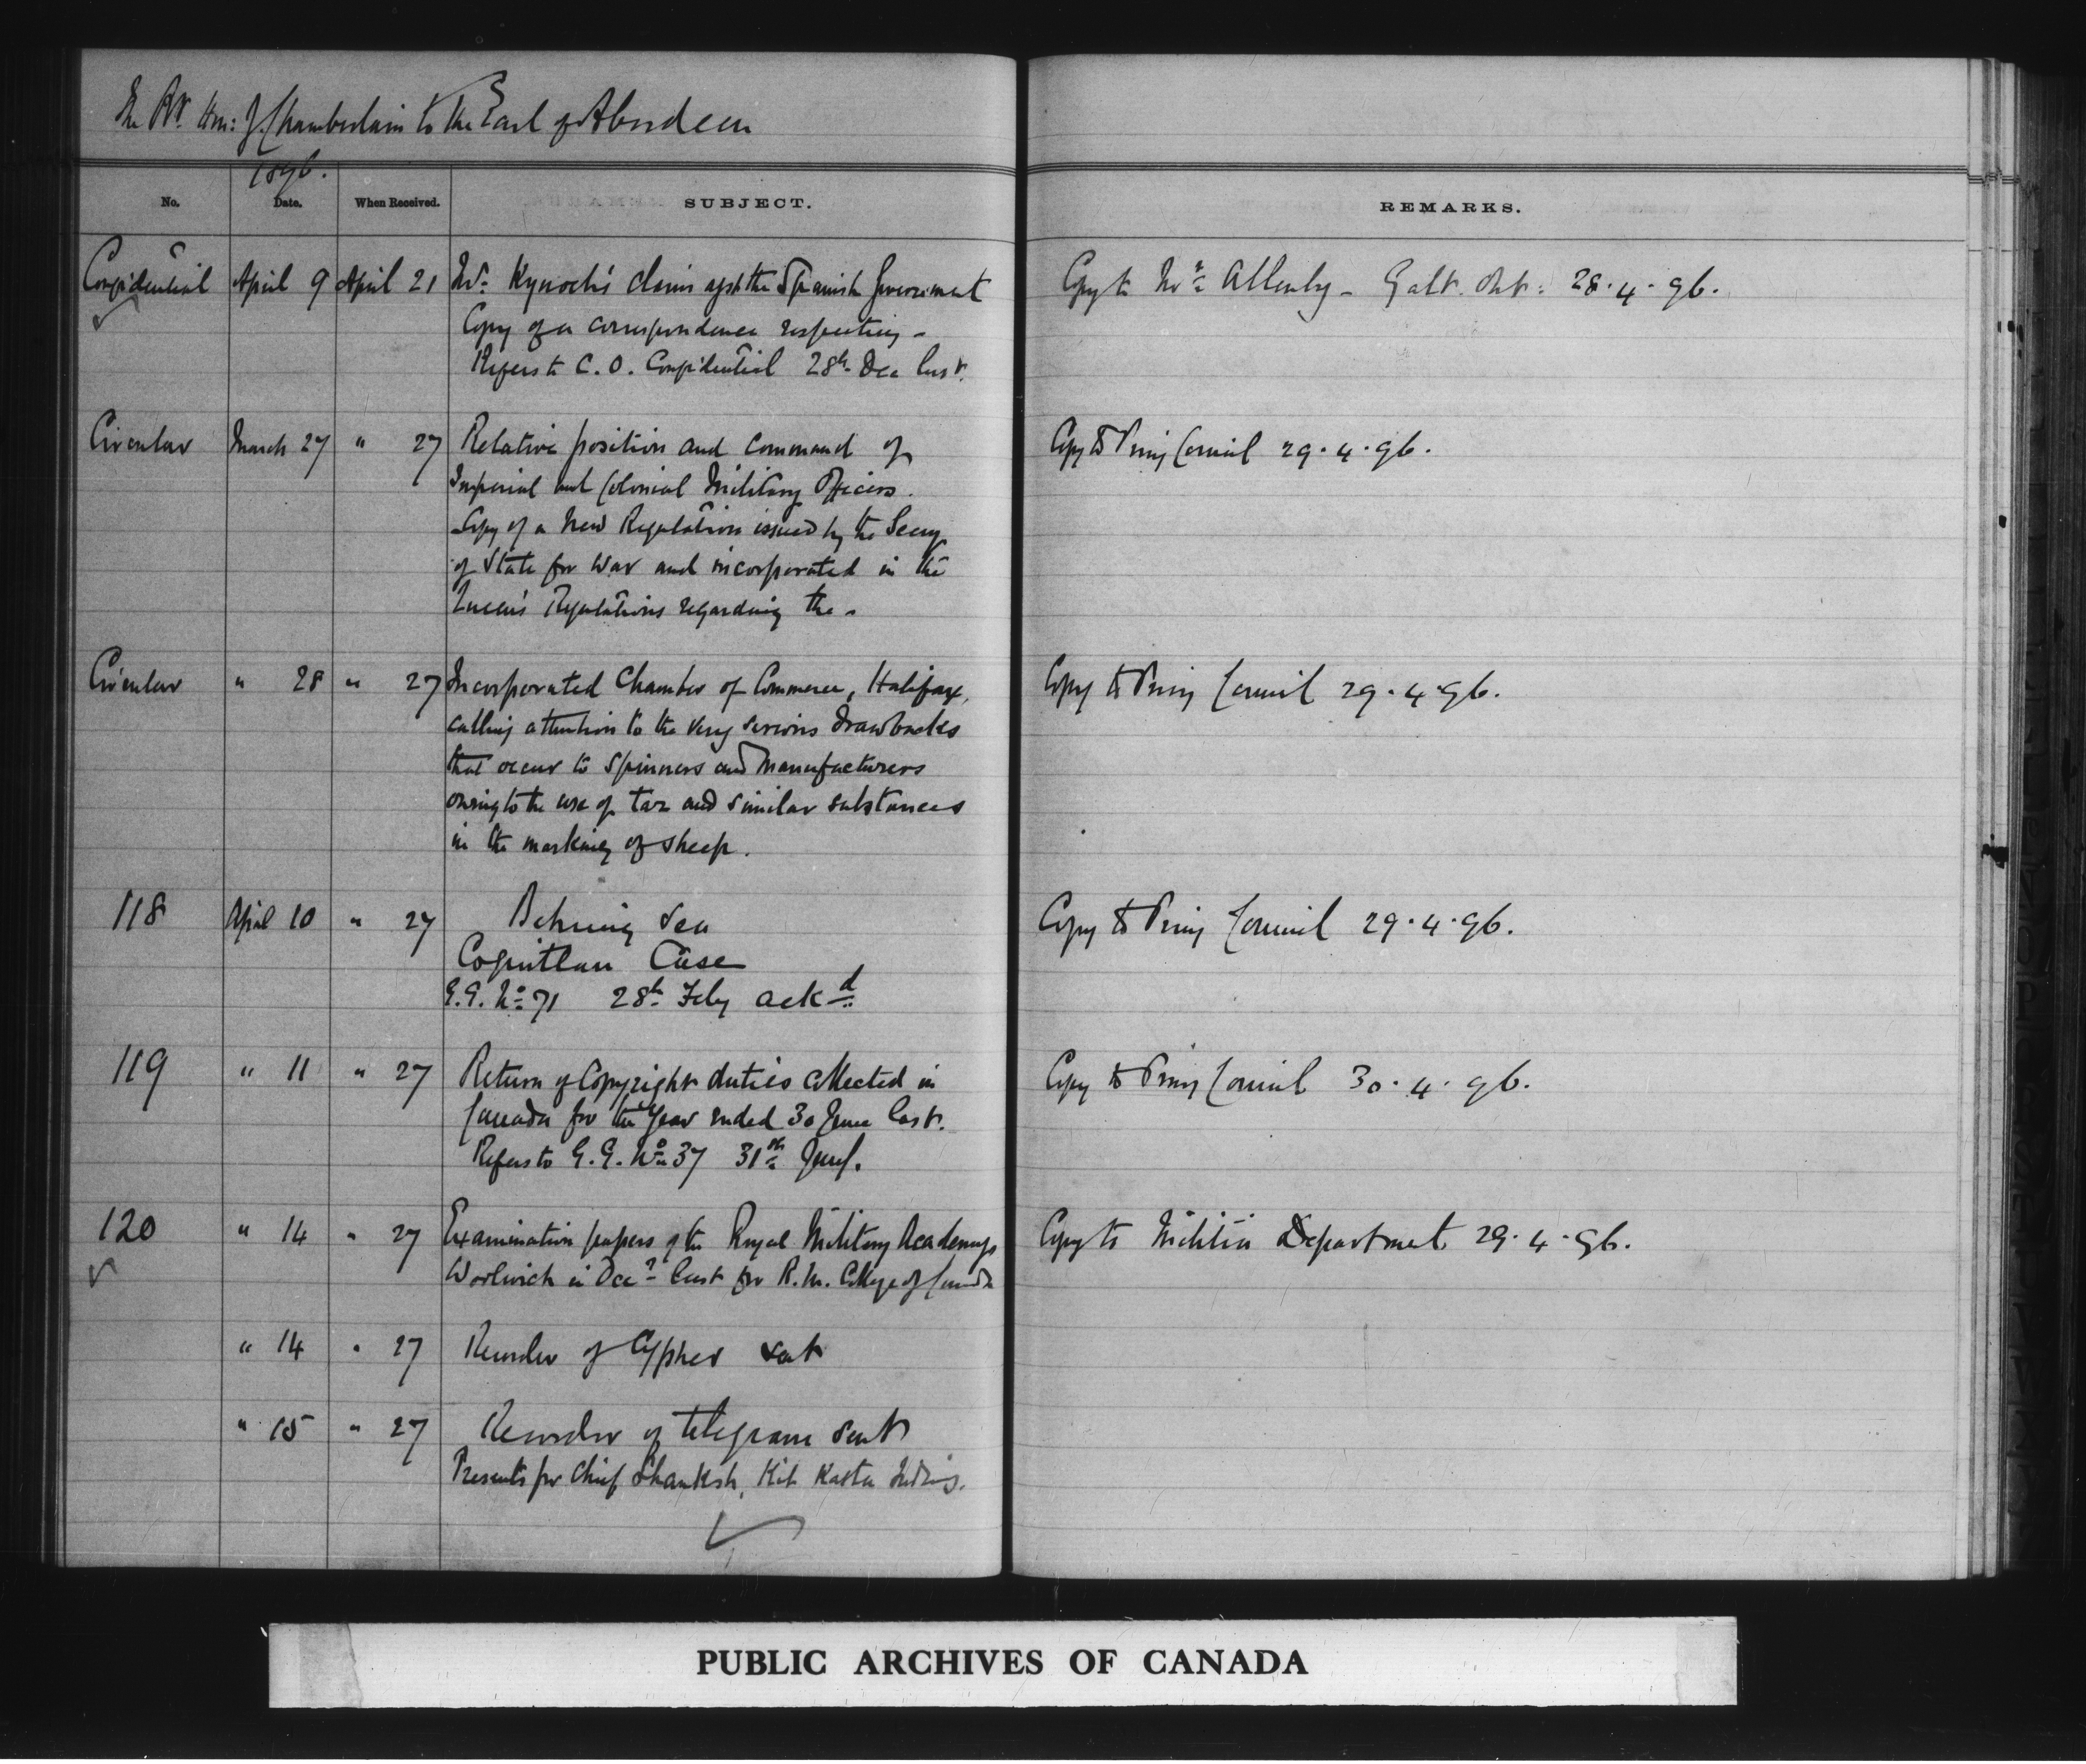 The Rt. Hon: J. Chamberlain to the Earl of Aberdeen
1896.
No. Date. When Received. SUBJECT. REMARKS.
Confidential April 9 April 21 Mr. Kynoch's claim agst the Spanish Government Copy to Mr. Allenby - Galt. Ont: 28.4.96.
Copy of a correspondence respecting -
Refers to C.O. Confidential 28th Dec last.
Circular March 27 " 27 Relative position and command of Copy to Privy Council 29.4.96.
Imperial and Colonial Military Officers.
Copy of a New Regulation issued by the Secry
of State for War and incorporated in the
Queen's Regulations regarding the -
Circular " 28 " 27 Incorporated Chamber of Commerce, Halifax, Copy to Privy Council 29.4.96.
calling attention to the very serious drawbacks
that occur to Spinners and Manufacturers
owing to the use of tar and similar substances
in the marking of sheep.
118 April 10 " 27 Behring Sea Copy to Privy Council 29.4.96.
Coquitlan Case
G.G. No 71 28th Feby ackd
119 " 11 " 27 Return of Copyright duties collected in Copy to Privy Council 30.4.96.
Canada for the Year ended 30 June last.
Refers to G.G. No 37 31st Jany.
120 " 14 " 27 Examination papers of the Royal Military Academy Copy to Militia Department 29.4.96.
Woolwich in Decr last for R.M. College of Canada
" 14 " 27 Recorder of Cypher sent
" 15 " 27 Recorder of telegram sent
Presents for Chief Shanksh, Kit Katta Indians.
PUBLIC ARCHIVES OF CANADA